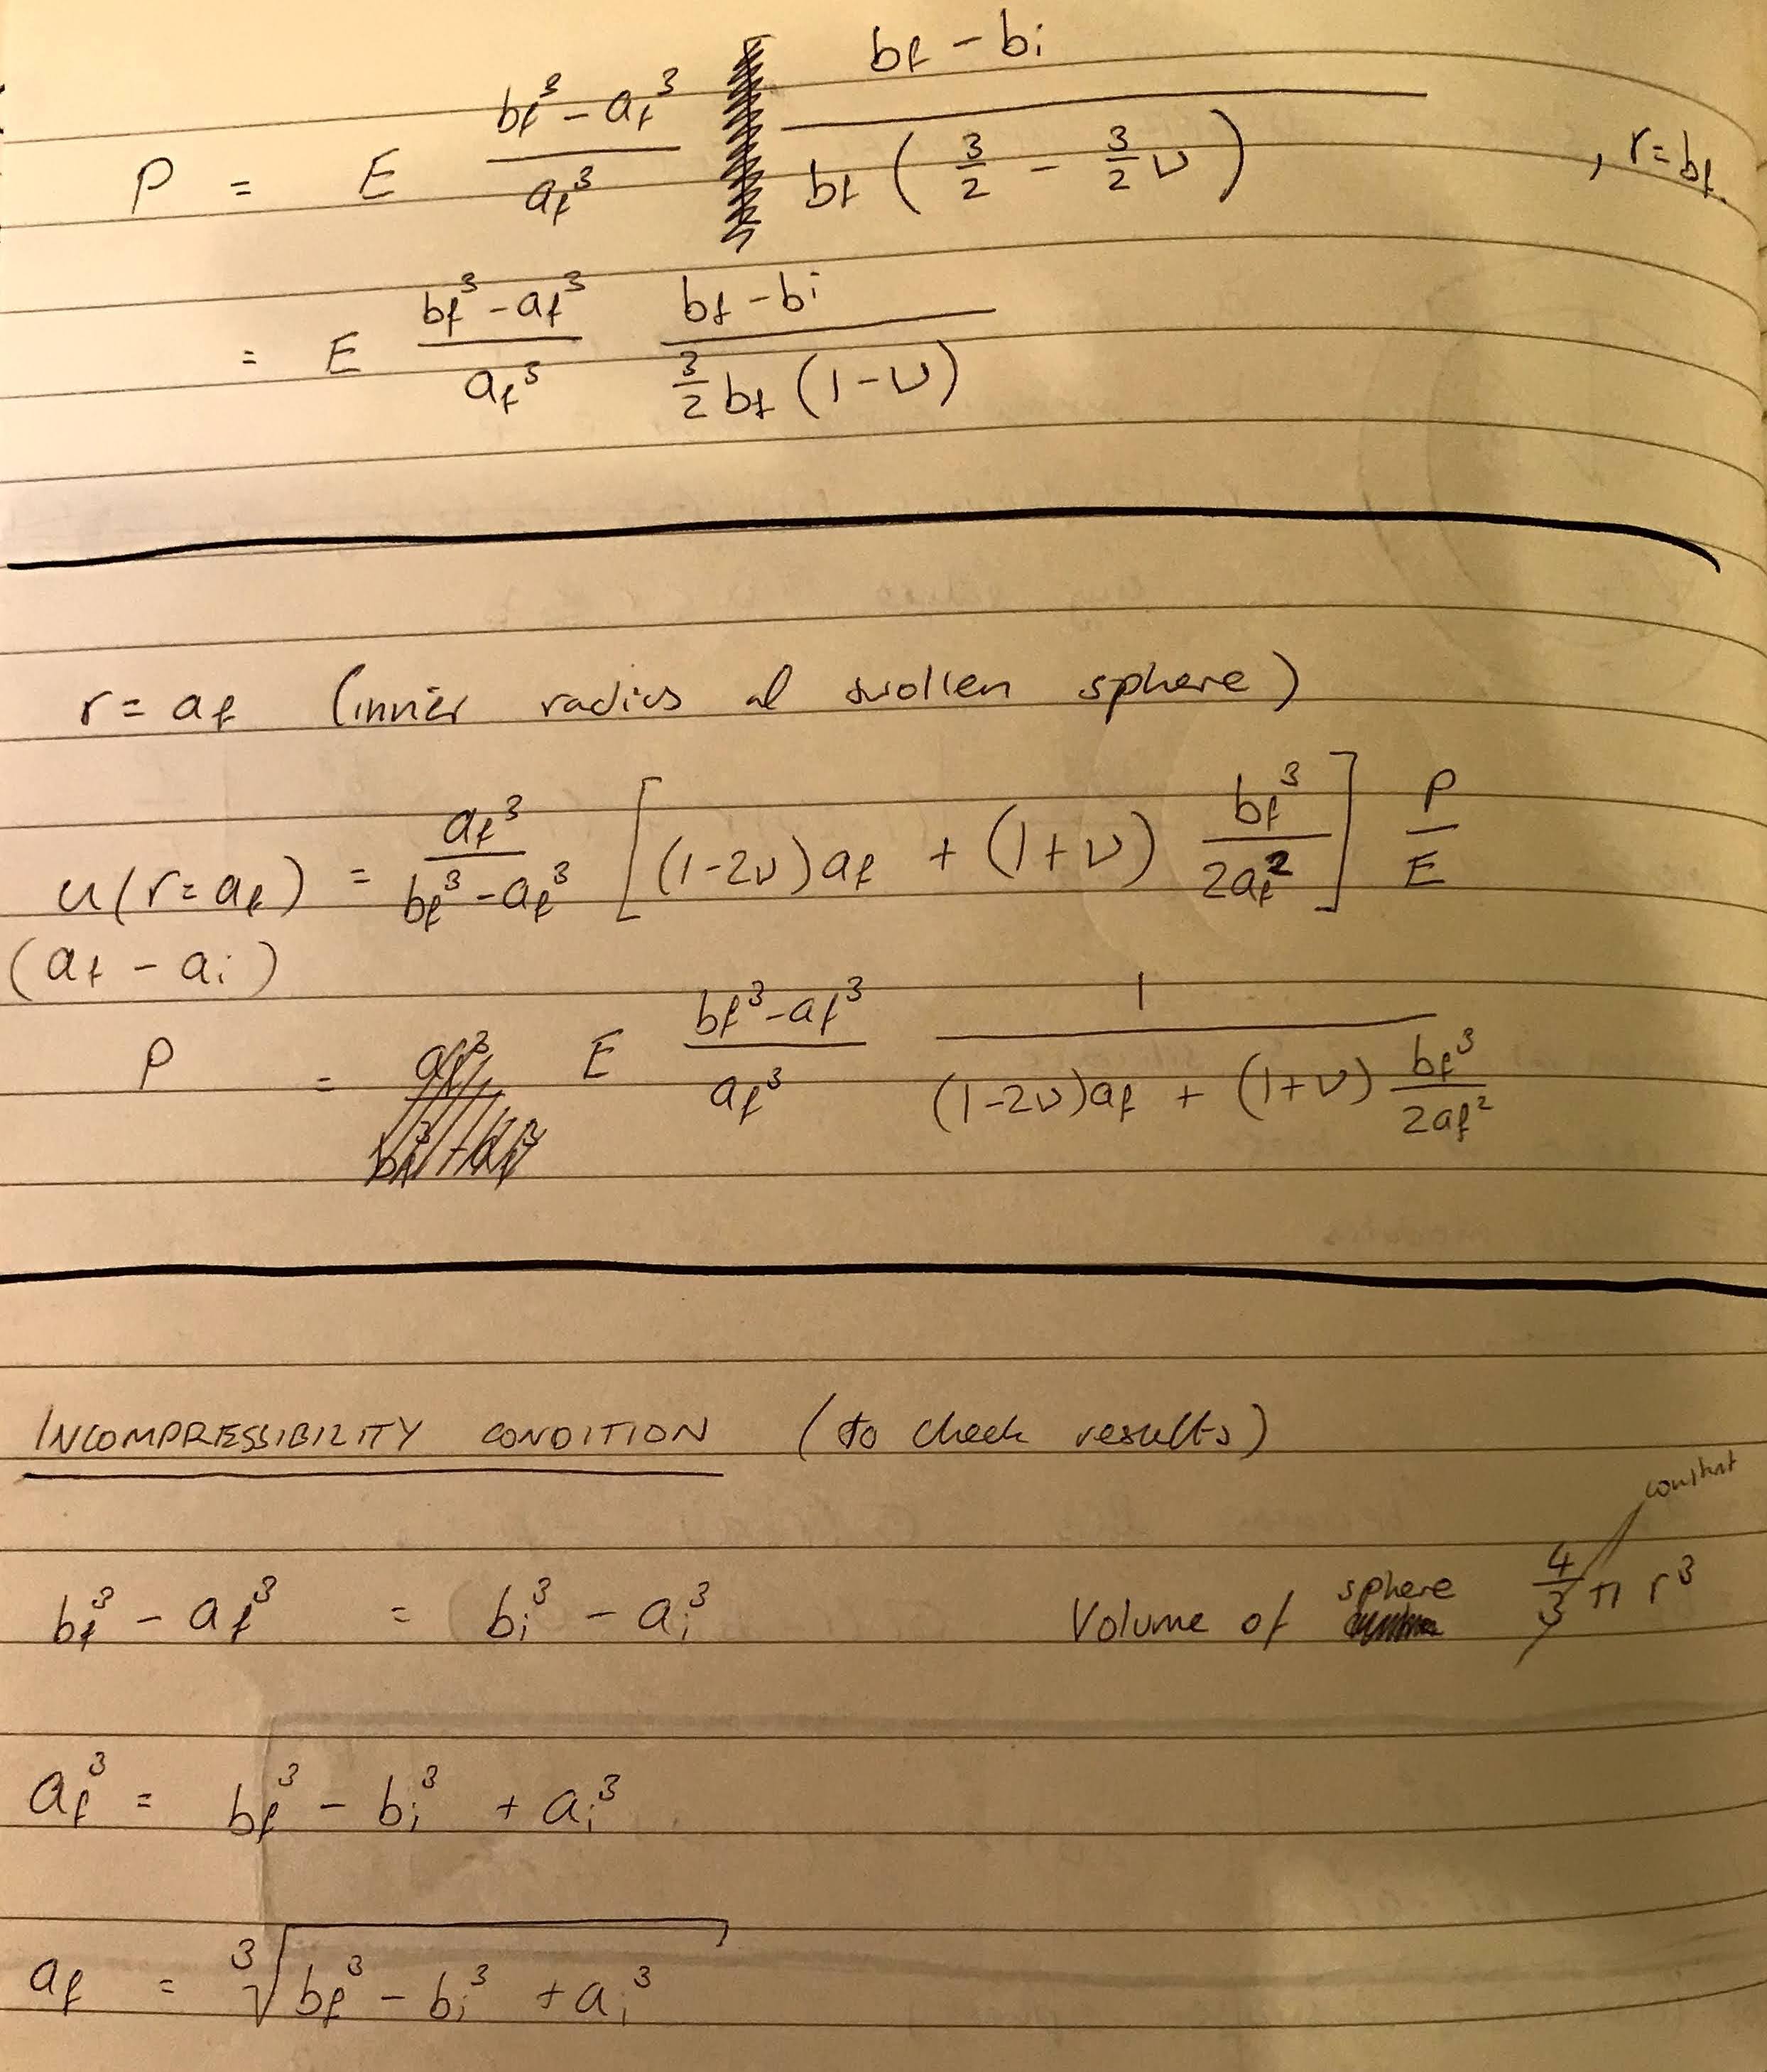 P = E (bf³ - af³)/(af³) (bf - bi)/(bf (3/2 - 3/2 ν)) , r = bf
= E (bf³ - af³)/(af³) (bf - bi)/(3/2 bf (1 - ν))
r = af (inner radius of swollen sphere)
u(r = af) = (af³)/(bf³ - af³) [(1-2ν)af + (1+ν) bf³/(2af²)] P/E
(af - ai)
P = E (bf³ - af³)/(af³) 1/((1-2ν)af + (1+ν) bf³/(2af²))
INCOMPRESSIBILITY CONDITION (to check results)
constant
bf³ - af³ = bi³ - ai³ Volume of sphere 4/3 π r³
af³ = bf³ - bi³ + ai³
af = ³√(bf³ - bi³ + ai³)